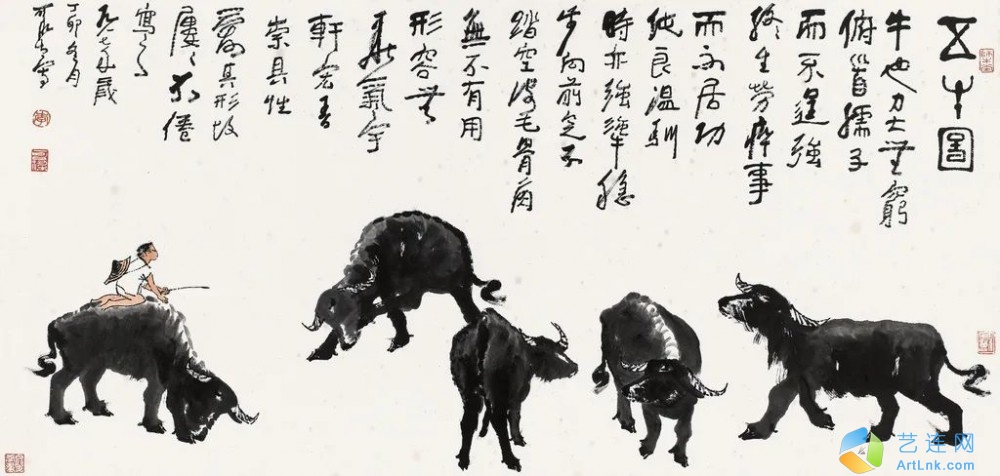 五牛圖
牛也力大無窮
俯首孺子
而不逞強
終生勞瘁事
而不居功
純良溫馴
時亦強犟穩
步向前足不
踏空皮毛骨角
無不有用
形容無
華氣宇
軒宏吾
崇其性
愛其形故
屢〻不倦
寫之
一九八七年歲
丁卯冬月
可染
艺连网
ArtLnk.com